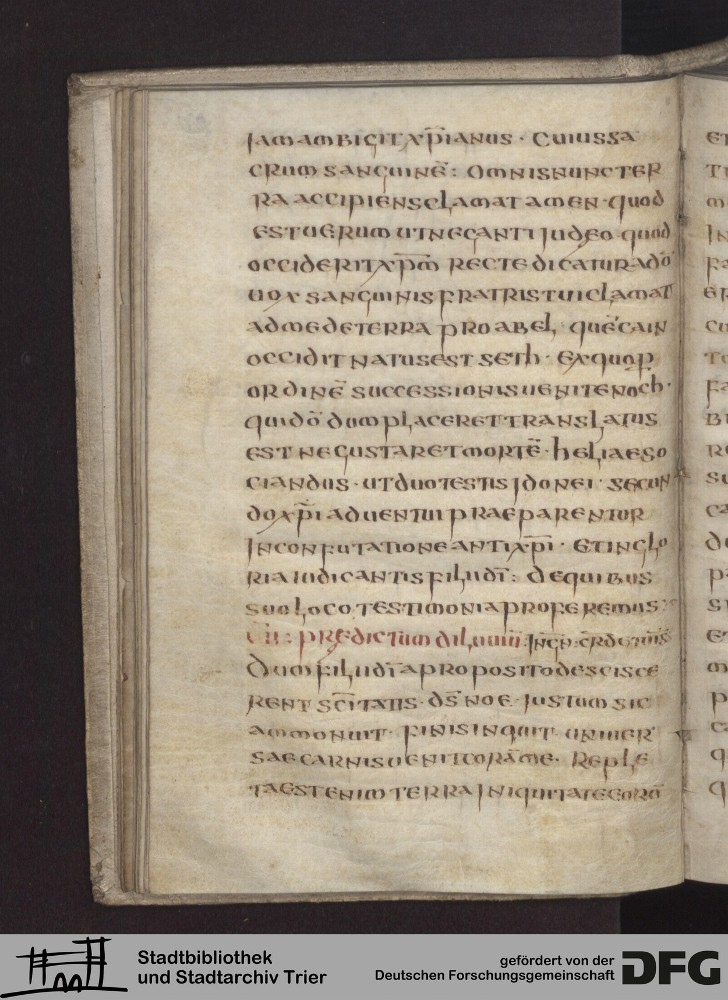 iamambigitxp̄ianus · Cuiussa
crumsanguinē: Omnisnuncter
raaccipiensclamatamen · quod
estuerumutnegantiiudeo · quod
occideritxp̄m̄ rectedicaturadō
uox sanguinisfratristuiclamat
admedeterra proabel · quēcain
occiditnatusestseth · Exquop̱
ordinē successionisuenitenoch ·
quidō dumplacerettranslatus
est negustaretmortē · heliaeso
ciandus · utduotestisidonei · secun
doxp̄iaduentuipraeparentur
inconfutationeantixp̄i · etinglo
riaiudicantisfiliidī : dequibus
suolocotestimoniaproferemus ·
VII : predictumdiluuiū ·
Dumfiliidīapropositodescisce
rent sc̄itatis · dsnoe · iustumsic
ammonuit · finisinquit · uniuer
saecarnisuenitcorāme · Reple
taestenimterrainiquitateeorū
Stadtbibliothek
und Stadtarchiv Trier
gefördert von der
Deutschen Forschungsgemeinschaft
DFG